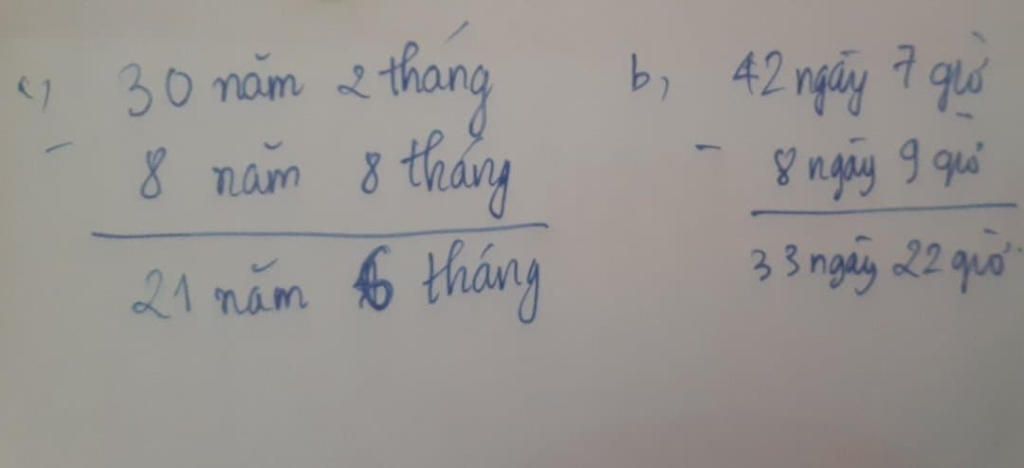 c, 30 năm 2 tháng
- 8 năm 8 tháng
21 năm 6 tháng
b, 42 ngày 7 giờ
- 8 ngày 9 giờ
33 ngày 22 giờ